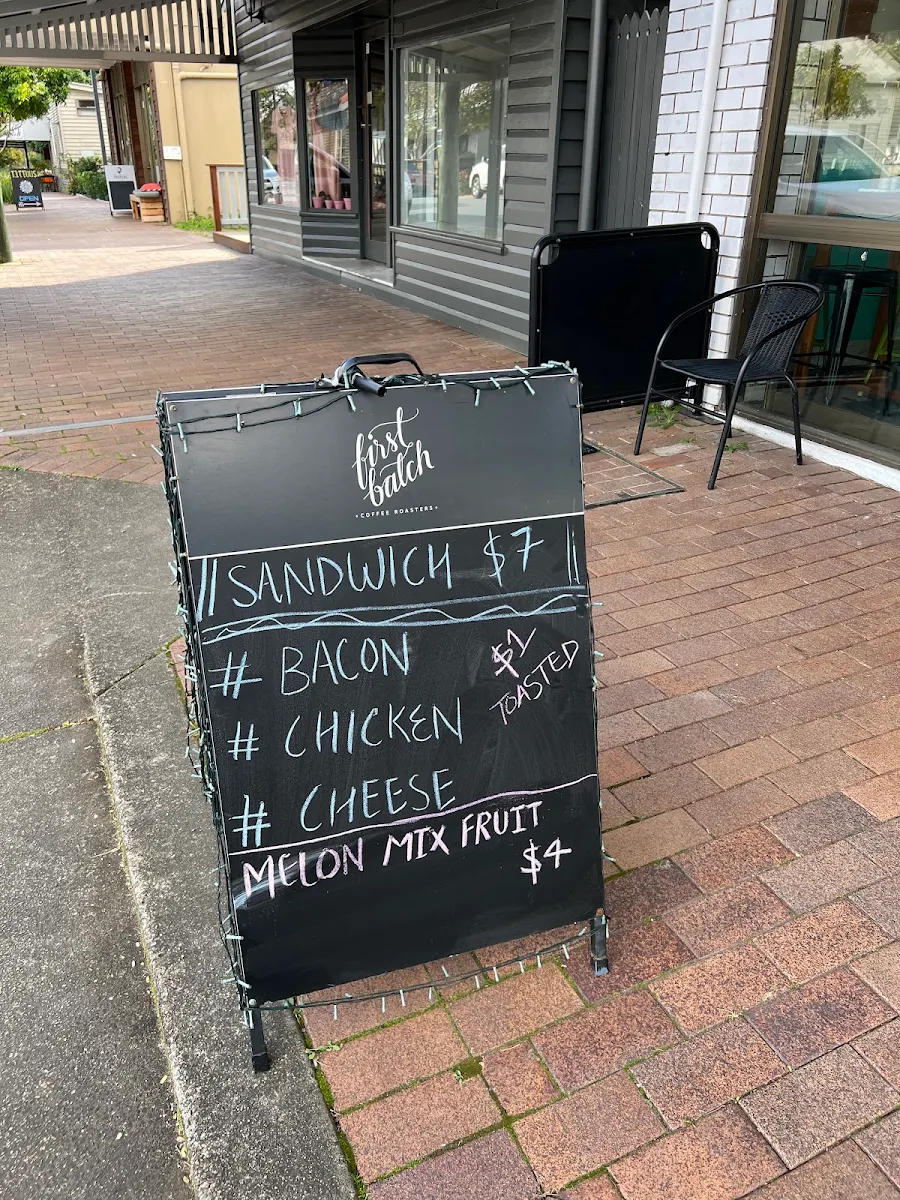 first
batch
• COFFEE ROASTERS •
SANDWICH $7
# BACON
$1
TOASTED
# CHICKEN
# CHEESE
MELON MIX FRUIT
$4
OPEN